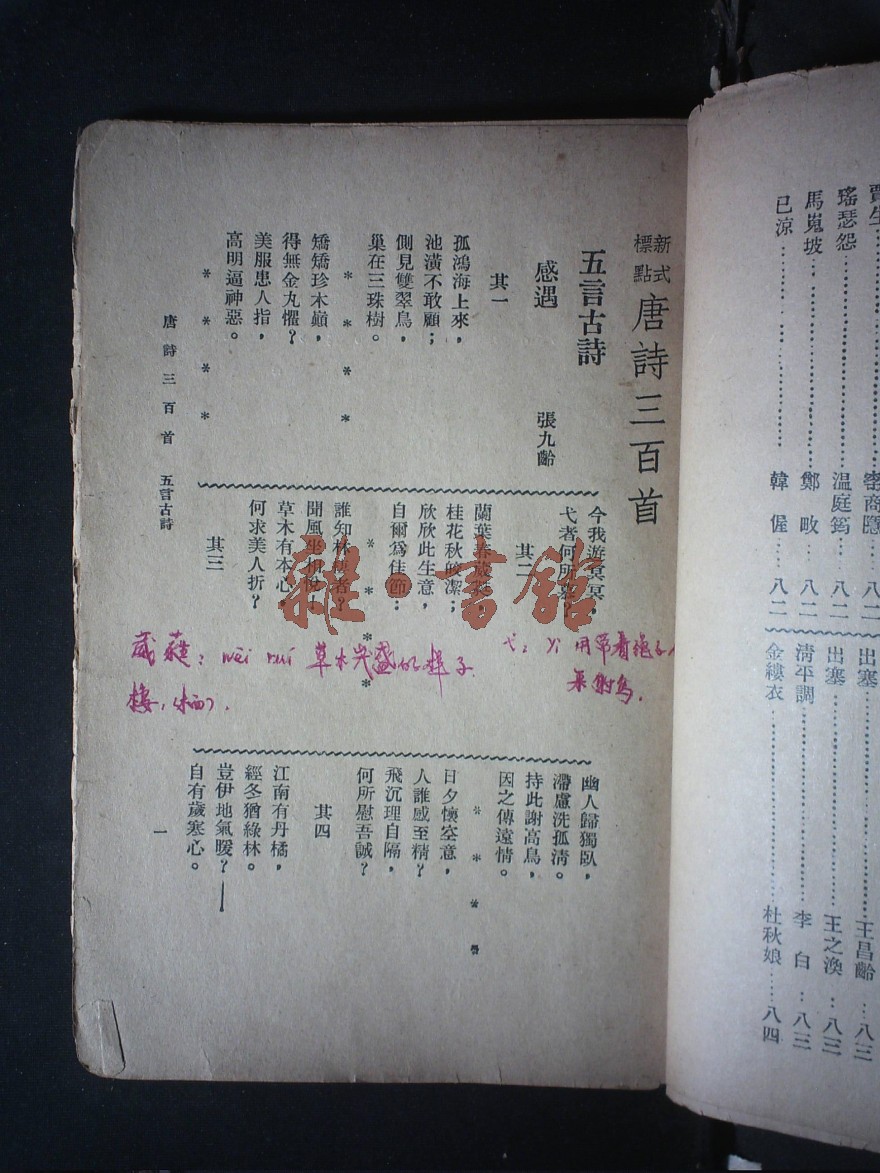 賈生
瑤瑟怨……溫庭筠 八二
馬嵬坡……鄭畋 八二
已涼……韓偓 八二
出塞……王昌齡…八三
出塞……王之渙‥八三
清平調……李白‥八三
金縷衣……杜秋娘……八四
新式標點 唐詩三百首
五言古詩
感遇 張九齡
其一
孤鴻海上來，
池潢不敢顧；
側見雙翠鳥，
巢在三珠樹。
* * * *
矯矯珍木巔，
得無金丸懼？
美服患人指，
高明逼神惡。
* * * *
今我遊冥冥，
弋者何所慕？
其二
蘭葉春葳蕤，
桂花秋皎潔；
欣欣此生意，
自爾爲佳節；
* * * *
誰知林棲者？
聞風坐相悅！
草木有本心，
何求美人折？
其三
幽人歸獨臥，
滯慮洗孤清。
持此謝高鳥，
因之傳遠情。
* * * *
日夕懷空意，
人誰感至精？
飛沉理自隔，
何所慰吾誠？
其四
江南有丹橘，
經冬猶綠林。
豈伊地氣暖？——
自有歲寒心。
唐詩三百首 五言古詩
一
弋：yì 用带着绳子
来射鸟．
葳蕤：wēi ruí 草木茂盛的样子
棲，(栖)．
雜·書館